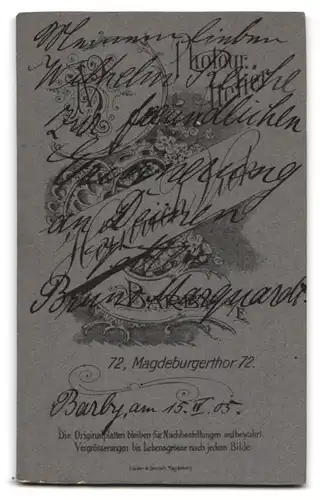 Meinem lieben
Wilhelm
Photogr.
Atelier
zur freundlichen
Erinnerung
an Deinen
Bruno Marquardt.
BARBY a/E
72, Magdeburgerthor 72.
Barby, am 15. II. 05.
Die Originalplatten bleiben für Nachbestellungen aufbewahrt.
Vergrösserungen bis Lebensgrösse nach jedem Bilde.